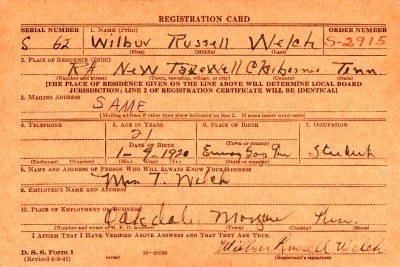 REGISTRATION CARD
SERIAL NUMBER 1. NAME (Print) ORDER NUMBER
S 62 Wilbur Russell Welch S-2915
(First) (Middle) (Last)
2. PLACE OF RESIDENCE (Print)
New Tazewell Claiborne Tenn
(Number and street) (Town, township, village, or city) (County) (State)
[THE PLACE OF RESIDENCE GIVEN ON THE LINE ABOVE WILL DETERMINE LOCAL BOARD
JURISDICTION; LINE 2 OF REGISTRATION CERTIFICATE WILL BE IDENTICAL]
3. MAILING ADDRESS
SAME
[Mailing address if other than place indicated on line 2. If same insert word same]
4. TELEPHONE 5. AGE IN YEARS 6. PLACE OF BIRTH 7. OCCUPATION
21
DATE OF BIRTH (Town or county)
1 9 1920 Student
(Exchange) (Number) (Mo.) (Day) (Yr.) (State or country)
8. NAME AND ADDRESS OF PERSON WHO WILL ALWAYS KNOW YOUR ADDRESS
T. Welch
9. EMPLOYER'S NAME AND ADDRESS
10. PLACE OF EMPLOYMENT OR BUSINESS
Oakdale Morgan Tenn.
(Number and street or R. F. D. number) (Town) (County) (State)
I AFFIRM THAT I HAVE VERIFIED ABOVE ANSWERS AND THAT THEY ARE TRUE.
D. S. S. Form 1 Wilbur Russell Welch
(Revised 6-9-41) (over) (Registrant's signature)